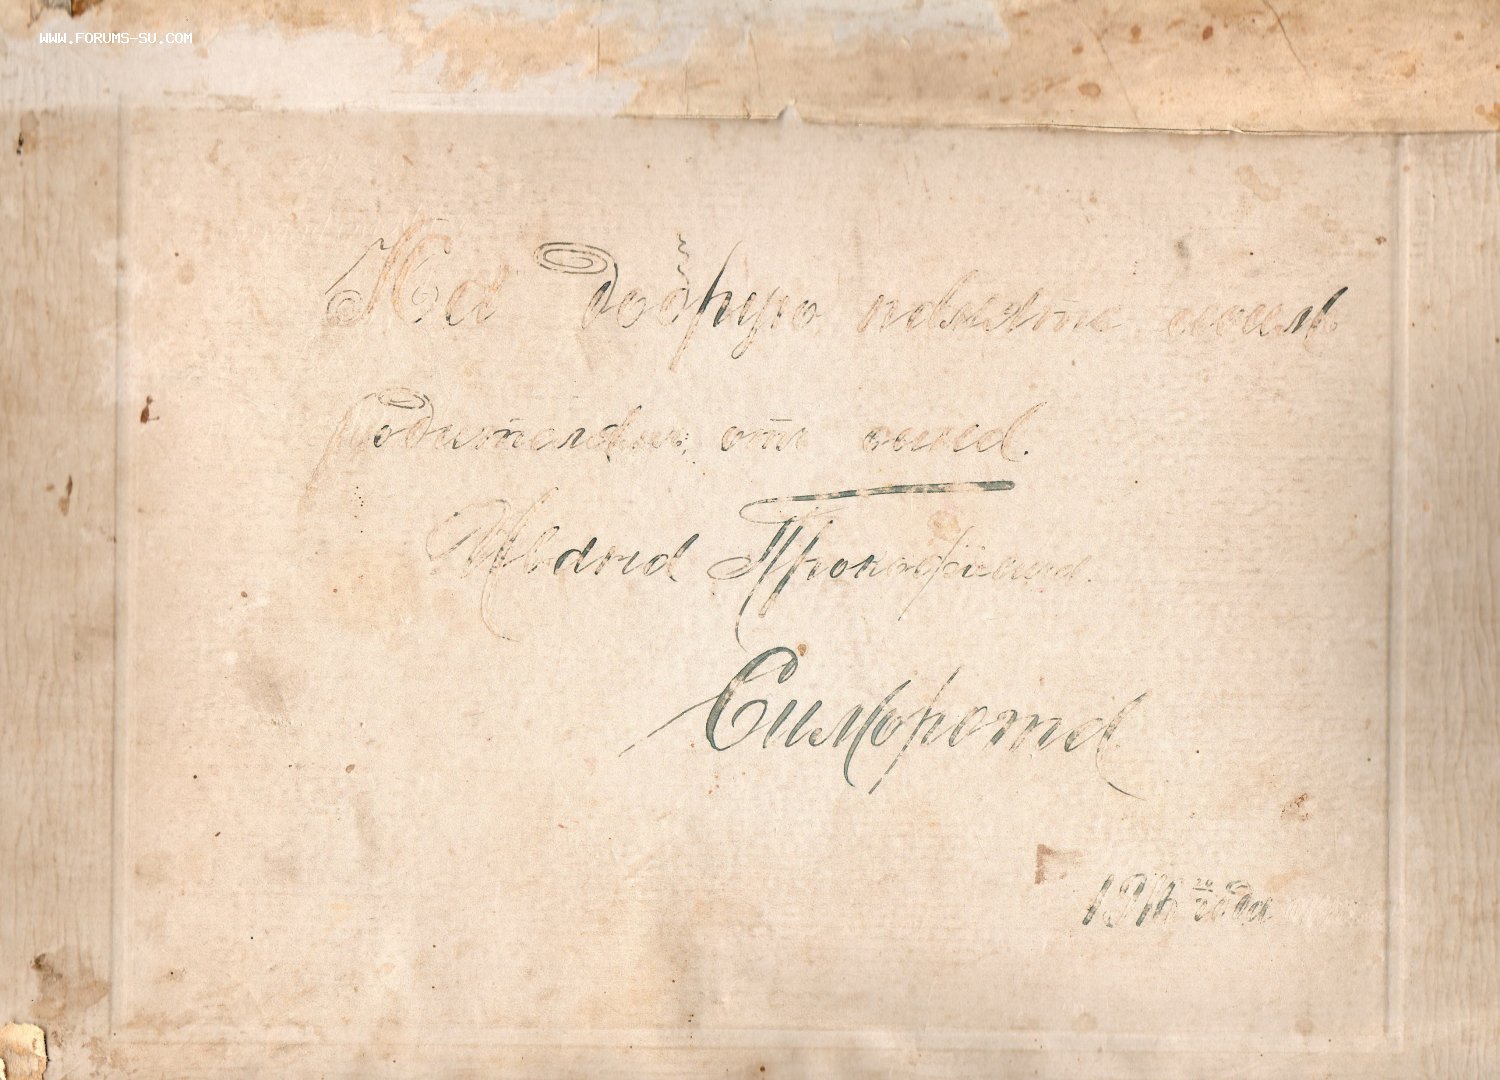 WWW.FORUMS-SU.COM
На добрую память моимъ
родителямъ отъ сына
Ивана Прокофьева
Симбротa
года